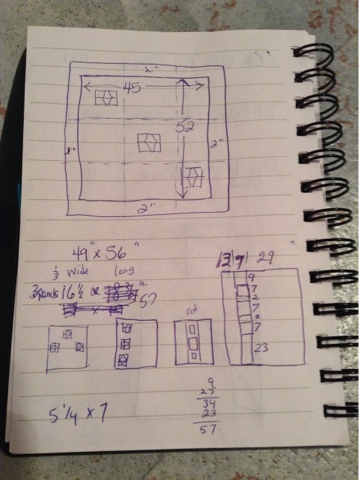 2"
45
52
2"
2"
2"
49" x 56"
1/3 wide long
3 panels 16 1/2 or
57
13 9 29
9
7
2
7
2
7
23
red
5 1/4 x 7
9
25
34
23
57